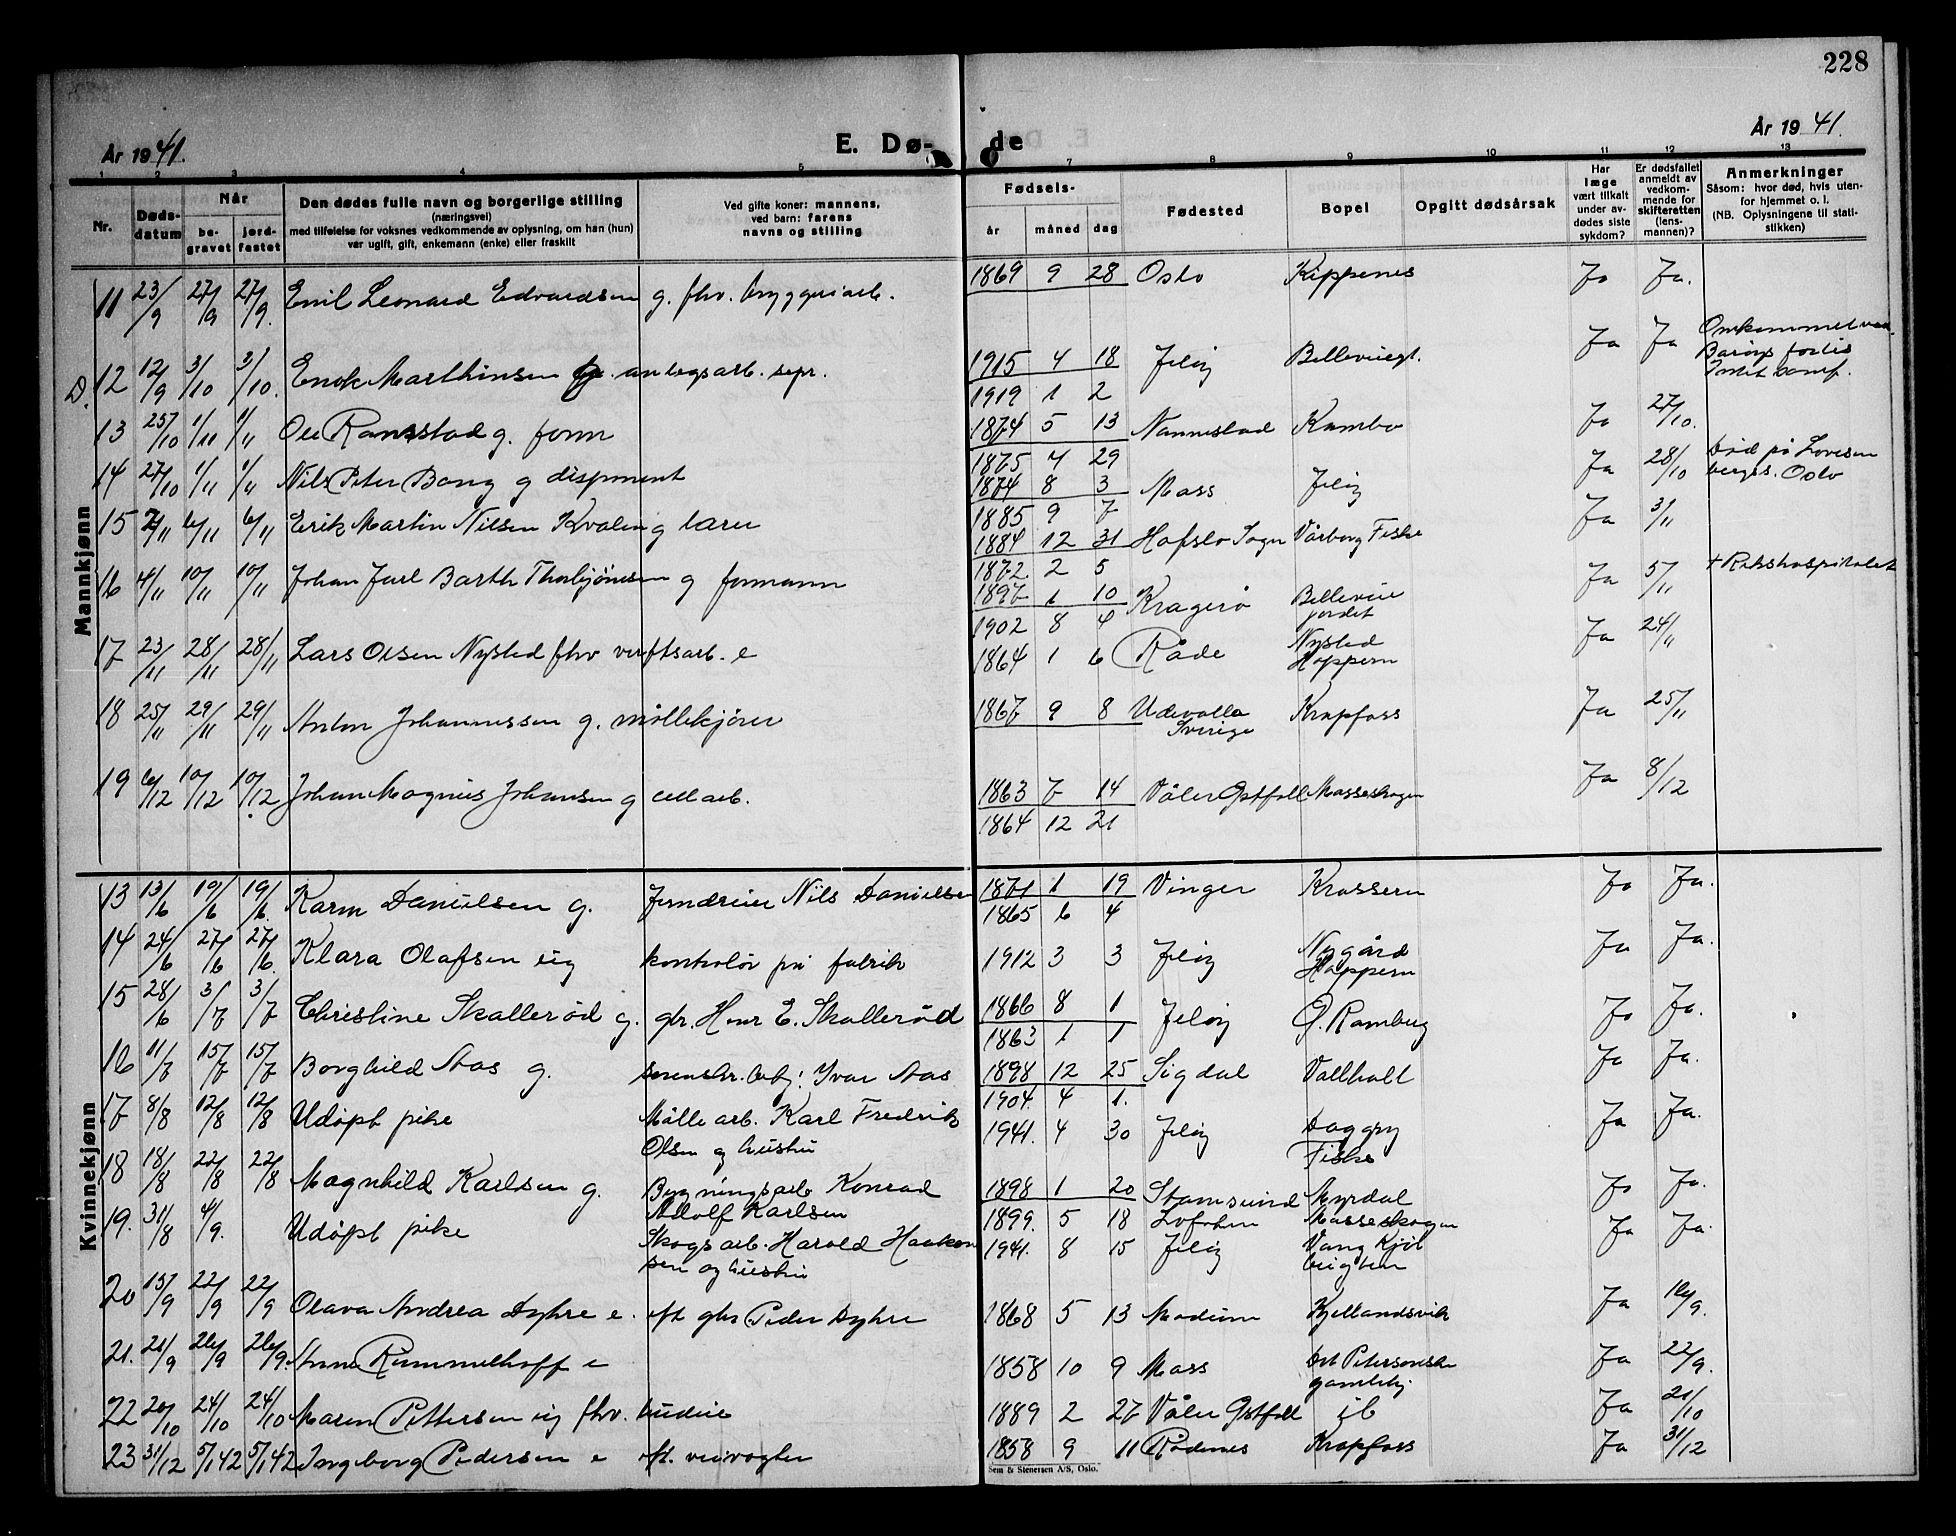 228
År 1941.
E. Dø- de
År 1941.
1 2 3 4 5 7 8 9 10 11 12 13
Nr.
Døds-
datum
Når
be-
gravet
jord-
festet
Den dødes fulle navn og borgerlige stilling
(næringsvei)
med tilføielse for voksnes vedkommende av oplysning, om han (hun)
var ugift, gift, enkemann (enke) eller fraskilt
Ved gifte koner: mannens,
ved barn: farens
navns og stilling
Fødsels-
år måned dag
Fødested
Bopel
Opgitt dødsårsak
Har
læge
vært tilkalt
under av-
dødes siste
sykdom?
Er dødsfallet
anmeldt av
vedkom-
mende for
skifteretten
(lens-
mannen)?
Anmerkninger
Såsom: hvor død, hvis uten-
for hjemmet o. l.
(NB. Oplysningene til stati-
stikken)
Mannkjønn
11 23/9 27/9 27/9. Emil Leonard Edvardsen g. fhv. bryggeriarb. 1869 9 28 Oslo Kippenes Ja Ja.
D. 12 12/9 3/10 3/10. Enok Marthinsen anlegsarb. sepr. 1915 4 18 Jeløy Ja Ja Omkommet
1919 1 2
13 25/10 1/11 1/11 Ole Ramstad g. form 1874 5 13 Nannestad Kambo Ja 27/10.
1875 4 29
14 27/10 1/11 1/11 Nils Peter Bang g disponent 1874 8 3 Moss Jeløy Ja 28/10 Død på Lovisen
berges. Oslo
1885 9 7
15 2/11 6/11 6/11 Erik Martin Nilsen Kvalen g lærer 1884 12 31 Hafslo Sogn Vårborg Fiske Ja 3/11
1872 2 5
16 4/11 10/11 10/11 Johan Jarl Barth Thorbjørnsen g formann 1897 1 10 Kragerø Bellevue
jordet Ja 5/11 + Rikshospitalet
1902 8 4
17 23/11 28/11 28/11 Lars Olsen Nysted fhv verftsarb. e 1864 1 6 Råde Nysted
Hoppern Ja 24/11
18 25/11 29/11 29/11 Anton Johannessen g. møllekjører 1867 9 8 Udevalla
Sverige Krapfoss Ja 25/11
19 6/12 10/12 10/12 Johan Magnus Johansen g cellarb. 1863 7 14 Våler Østfoll Mosseskogen Ja 8/12
1864 12 21
Kvinnekjønn
13 13/6 19/6 19/6. Karen Danielsen g. Nils Danielsen 1871 1 19 Vinger Krossern Ja Ja.
1865 6 4
14 24/6 27/6 27/6. Klara Olafsen ug kontrolør på fabrik 1912 3 3 Jeløy Nygård
Hoppern Ja Ja.
15 28/6 3/7 3/7 Christine Skallerød g. gbr. Hans E. Skallerød 1866 8 1 Jeløy Ø. Ramberg Ja Ja.
1863 1 1
16 11/7 15/7 15/7 Borghild Aas g. Ivar Aas 1898 12 25 Sigdal Vallhall Ja Ja.
1904. 4 1.
17 8/8 12/8 12/8 Udøpt pike Mølle arb. Karl Fredrik
Olsen og hustru 1941. 4 30 Jeløy Daggry
Fiske Ja Ja.
18 18/8 22/8 22/8 Magnhild Karlsen g. Bygningsarb Konrad
Adolf Karlsen 1898 1 20 Stamsund Myrdal Ja Ja.
1899. 5 18 Lofoten Mosseskogen
19. 31/8 4/9. Udøpt pike Skogsarb. Harald Haakon
sen og hustru 1941. 8 15 Jeløy Vang Ja Ja.
20 15/9 22/9 22/9 Olava Andrea Dyhre e. eft gbr Peder Dyhre 1868 5 13 Modum Kjellandsvik Ja 16/9.
21. 21/9 26/9 26/9. Anna Rummelhoff e 1858 10 9 Moss Det Petersonske
gamlehj Ja 22/9.
22 20/10 24/10 24/10 Maren Pettersen ug fhv. budeie 1889 2 27 Våler Østfoll ib Ja 21/10
23 31/12 5/1 42 5/1 42 Ingeborg Pedersen e eft. veivogter 1858 9 11 Rødenes Krapfoss Ja 31/12
Sem & Stenersen A/S, Oslo.